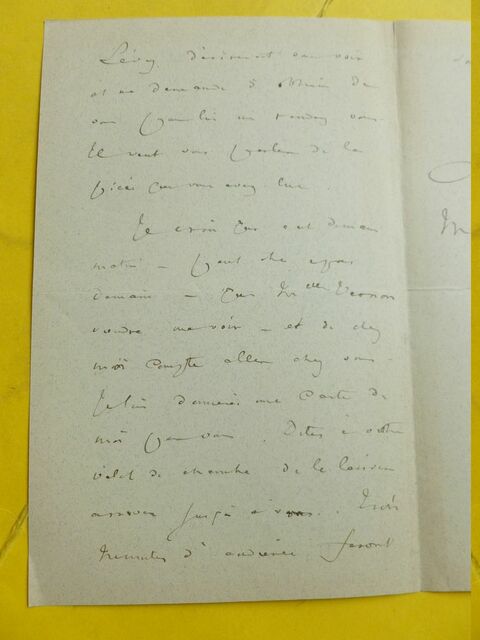 Lévy désirerait vous voir
et me demande
vous parler un rendez vous
Il veut vous parler de la
pièce que vous avez lue.
Je crois que c'est demain
matin - peut être après
demain - que Melle Vernon
voudra me voir - et de chez
moi compte aller chez vous -
Je lui donnerai une carte de
moi pour vous. Dites à votre
valet de chambre de la laisser
arriver jusqu'à vous. Trois
minutes d'audience feront